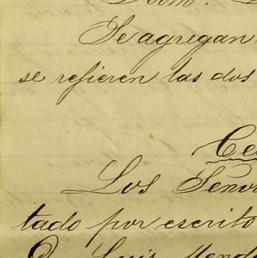 Se agregan
se refieren las dos
Los Señor
tado por escrito
D. Luis Mend